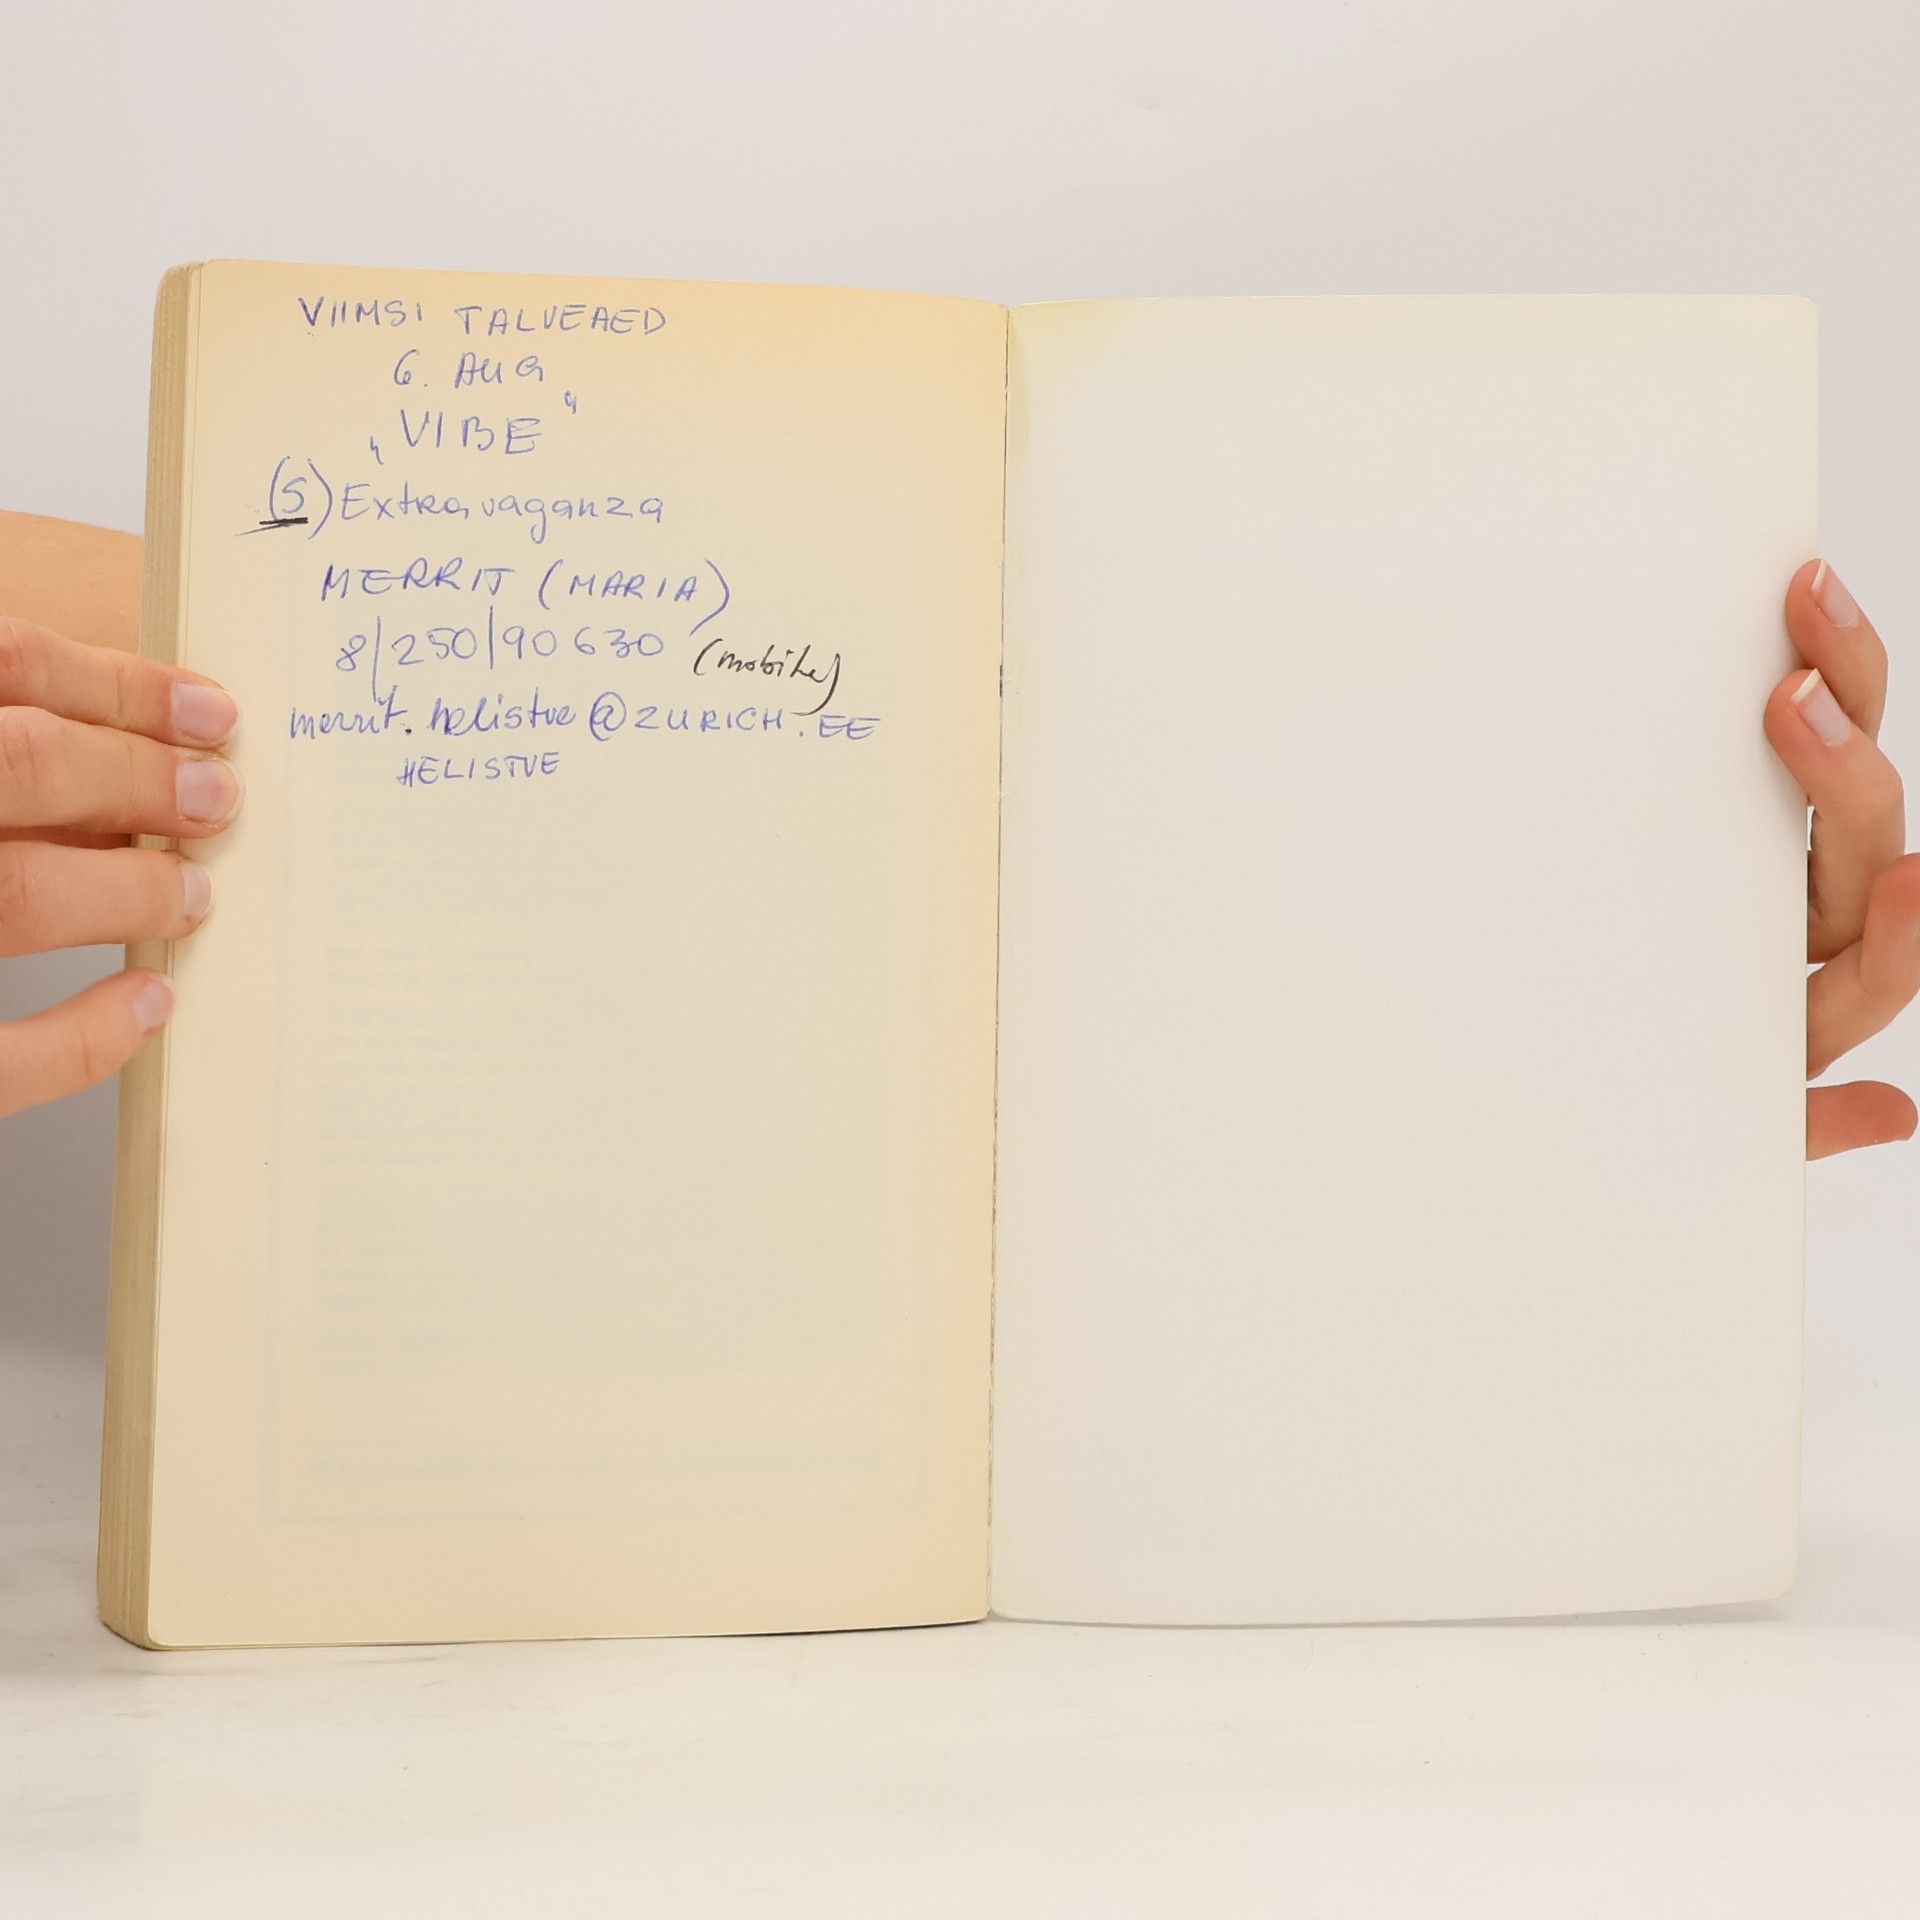 VIIMSI TALVEAED
6. AUG
„VIBE"
(S) Extravaganza
MERRIT (MARIA)
8/250/90 630 (mobile)
merrit.helistve@ZURICH.EE
HELISTVE